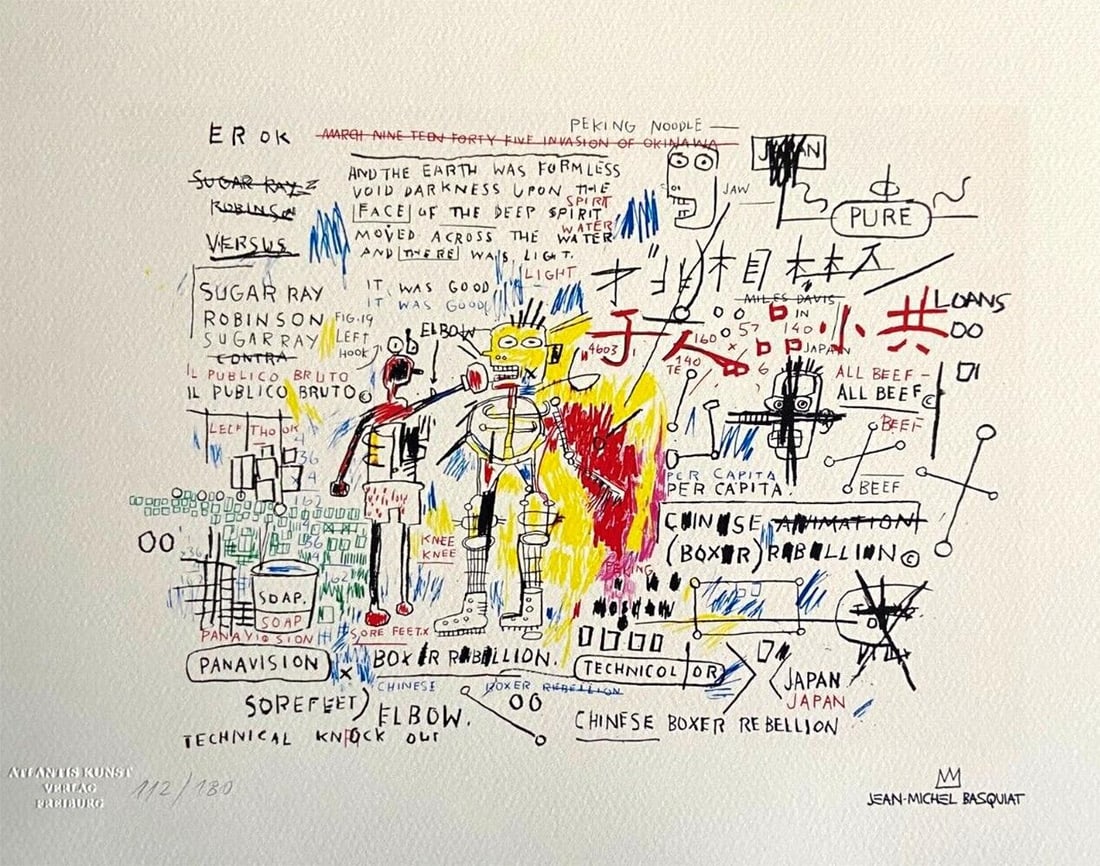 PEKING NOODLE
ER OK
MARCH NINE TEEN FORTY FIVE INVASION OF OKINAWA
SUGAR RAY
ROBINSON
VERSUS
AND THE EARTH WAS FORMLESS
VOID DARKNESS UPON THE
SPIRIT
FACE OF THE DEEP SPIRIT
WATER
MOVED ACROSS THE WATER
AND THERE WAS LIGHT.
LIGHT
IT WAS GOOD
IT WAS GOOD
JAW
JAPAN
PURE
SUGAR RAY
ROBINSON
SUGAR RAY
CONTRA
IL PUBLICO BRUTO
IL PUBLICO BRUTO©
FIG.19
LEFT
HOOK
ELBOW
MILES DAVIS
IN
JAPAN
小 共
LOANS
57
140
160
4603
140
6
ALL BEEF-
ALL BEEF©
BEEF
BEEF
PER CAPITA
PER CAPITA.
CHINESE ANIMATION
(BOXER) REBELLION©
36
4
162
KNEE
KNEE
PEKING
SOAP.
SOAP
PANAVISION
PANAVISION
SORE FEET.X
BOXER REBELLION.
TECHNICOLOR
CHINESE BOXER REBELLION
JAPAN
JAPAN
SOREFEET)
ELBOW.
CHINESE BOXER REBELLION
TECHNICAL KNOCK OUT
ATLANTIS KUNST
VERLAG
FREIBURG
112/180
JEAN-MICHEL BASQUIAT